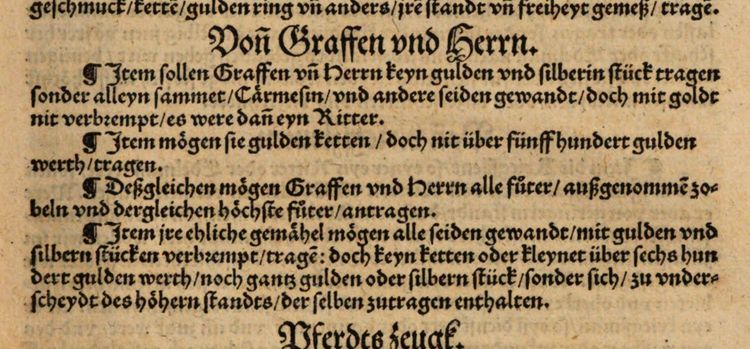 geschmuck/kettē/gulden ring vn̄ anders/jre standt vn̄ freiheyt gemeß/tragē.
Von̄ Graffen vnd Herrn.
¶ Item sollen Graffen vn̄ Herrn keyn gulden vnd silberin stück tragen
sonder alleyn sammet/Carmesin/vnd andere seiden gewandt/doch mit goldt
nit verbrempt/es were dan̄ eyn Ritter.
¶ Item mögen sie gulden ketten/doch nit über fünff hundert gulden
werth/tragen.
¶ Deßgleichen mögen Graffen vnd Herrn alle fůter/außgenommē zo-
beln vnd dergleichen höchste fůter/antragen.
¶ Item jre ehliche gemähel mögen alle seiden gewandt/mit gulden vnd
silbern stücken verbrempt/tragē: doch keyn ketten oder kleynet über sechs hun
dert gulden werth/noch gantz gulden oder silbern stück/sonder sich/zu vnder-
scheydt des höhern standts/der selben zutragen enthalten.
Pferdts zeugk.